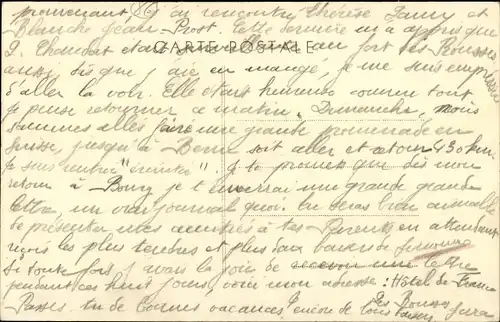 promenant (86) j'ai rencontré Thérèse Jamy et
Blanche Jean-Prost. Cette dernière m'a appris que
J. Chamont était au fort des Rousses
CARTE POSTALE
aussi dès que j'ai eu mangé, je me suis empressée
d'aller la voir. Elle était heureuse comme tout
je pense retourner ce matin. Dimanche, nous
sommes allés faire une grande promenade en
Suisse, jusqu'à Berne soit aller et retour 430 km.
je suis rentrée "éreintée". Je te promets que dès mon
retour à Bourg je t'enverrai une grande grande
lettre, un vrai journal quoi. Tu seras bien aimable
de présenter mes amitiés à tes Parents en attendant
reçois les plus tendres et plus doux baisers de
Si toute fois j'avais la joie de recevoir une lettre
pendant ces huit jours, voici mon adresse: Hôtel de France
Les Rousses Jura
Passes-tu de bonnes vacances? Encore de bons baisers